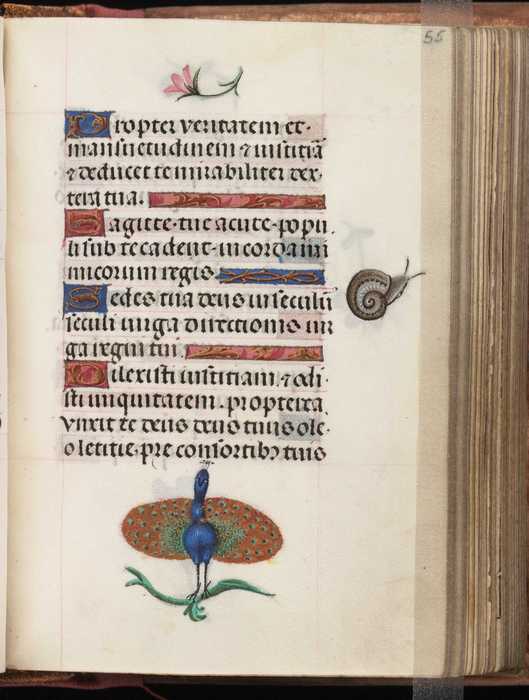 55
Propter veritatem et·
mansuetudinem & iustitiā
& deducet te mirabiliter dex·
tera tua.
Sagitte·tue acute·popu·
li sub te cadent·in corda ini
micorum regis.
Sedes tua deus in seculū
seculi virga directionis vir
ga regni tui.
Dilexisti iustitiam, & odi·
sti iniquitatem·propterea
vnxit te deus deus tuus ole·
o letitie·pre consortibꝫ tuis